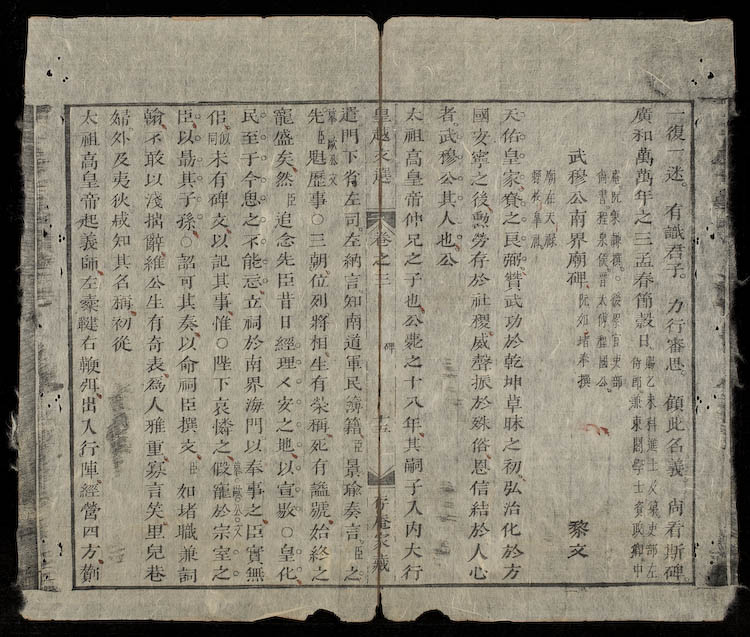 一復一迷。有識君子。力行審思。顧此名義。尚看斯碑
廣和萬萬年之三孟春節穀日 賜乙未科進士及第吏部左侍郎兼東閣學士 中
武穆公南界廟碑 阮 撰。後累官吏部尚書掌 太傅 國公 廟在天 阮如堵奉撰
黎文
天佑皇家。賚之良弼。贊武功於乾坤草昧之初。弘治化於方
國安寧之後。勲勞存於社稷。威聲振於殊俗。恩信結於人心
者。武穆公其人也。公
太祖高皇帝仲兄之子也。公薨之十八年。其嗣子入內大行
皇越文選 卷之三 碑 十五 存庵家藏
遣門下省左司。左納言知南道軍民簿籍臣景瑜奏言。臣之
先臣魁歷事○三朝。位列將相。生有榮稱。死有諡號。始終之
寵盛矣。然臣追念先臣昔日經理乂安之地。以宣敷○皇化
民至于今思之不能忘。立祠於南界海門以奉事之。臣實無
侶。未有碑文以記其事。惟○陛下哀憐之。假寵於宗室之
臣。以勗其子孫。○詔可其奏。以命祠臣撰文。臣如堵職兼詞
翰。不敢以淺拙辭。維公生有奇表。為人雅重寡言笑。里兒巷
婦外及夷狄。咸知其名稱。初從
太祖高皇帝起義師。左櫜鞬右鞭弭。出入行陣。經營四方。